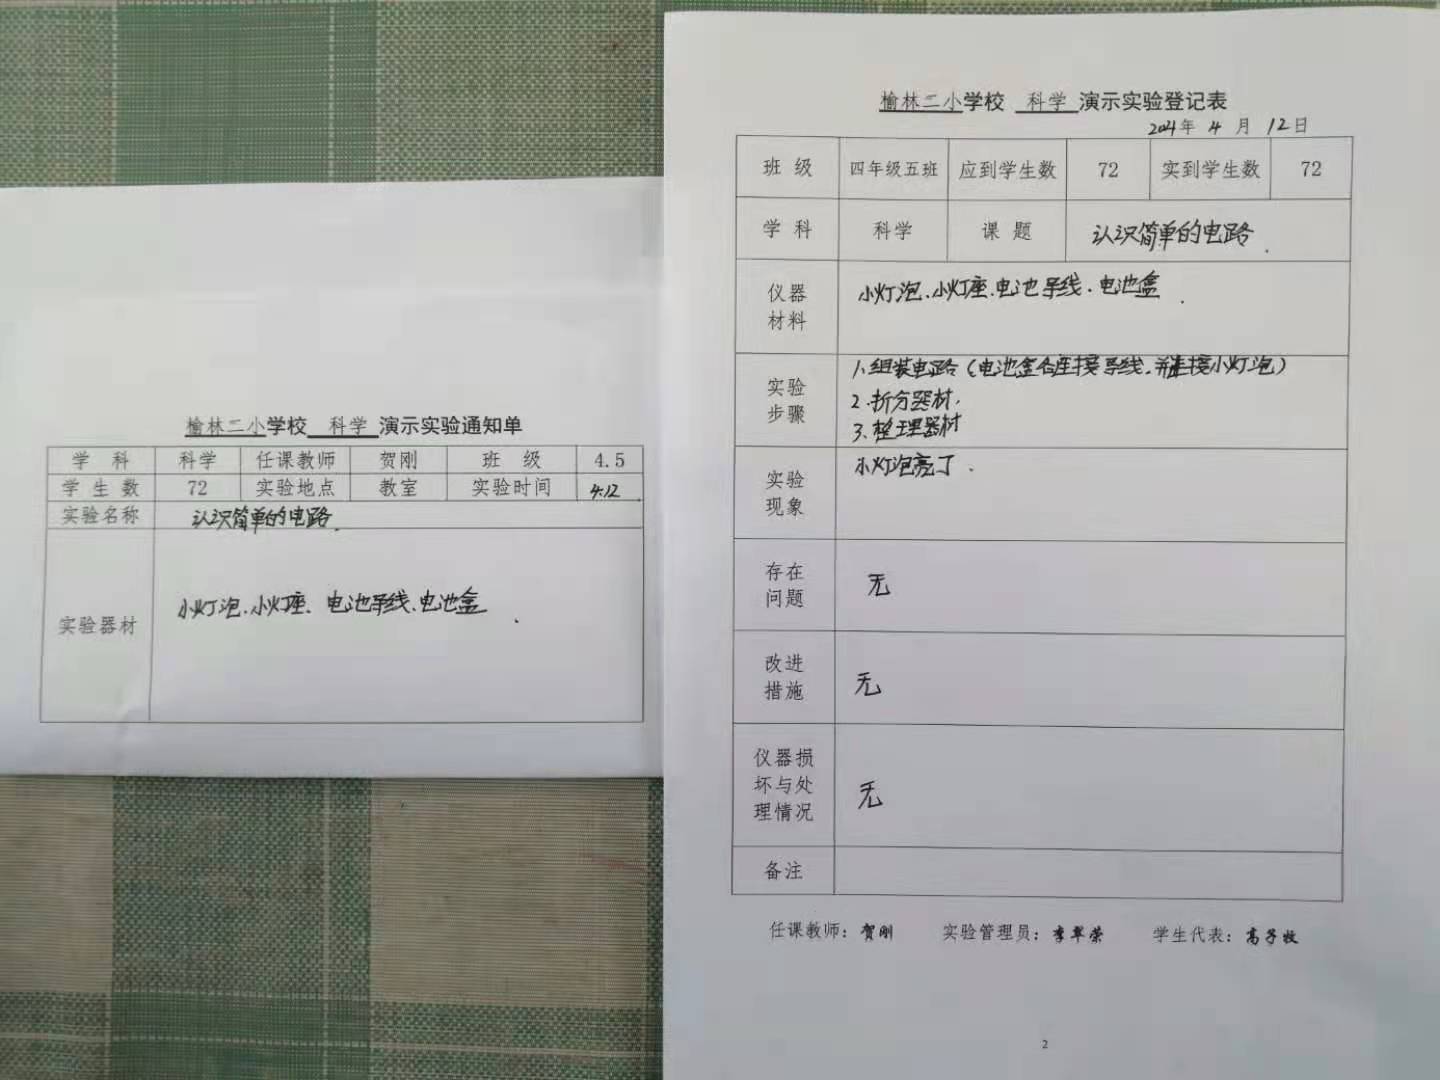 榆林二小学校 科学 演示实验通知单
学 科 科学 任课教师 贺刚 班 级 4.5
学 生 数 72 实验地点 教室 实验时间 4.12
实验名称 认识简单的电路.
实验器材 小灯泡、小灯座、电池导线、电池盒.
榆林二小学校 科学 演示实验登记表
2021年 4 月 12日
班 级 四年级五班 应到学生数 72 实到学生数 72
学 科 科学 课 题 认识简单的电路.
仪器
材料
小灯泡、小灯座、电池导线、电池盒.
实验
步骤
1.组装电路(电池盒连接导线、并连接小灯泡)
2.拆分器材.
3.整理器材
实验
现象
小灯泡亮了.
存在
问题
无
改进
措施
无
仪器损
坏与处
理情况
无
备注
任课教师:贺刚 实验管理员:李翠荣 学生代表:高子牧
2